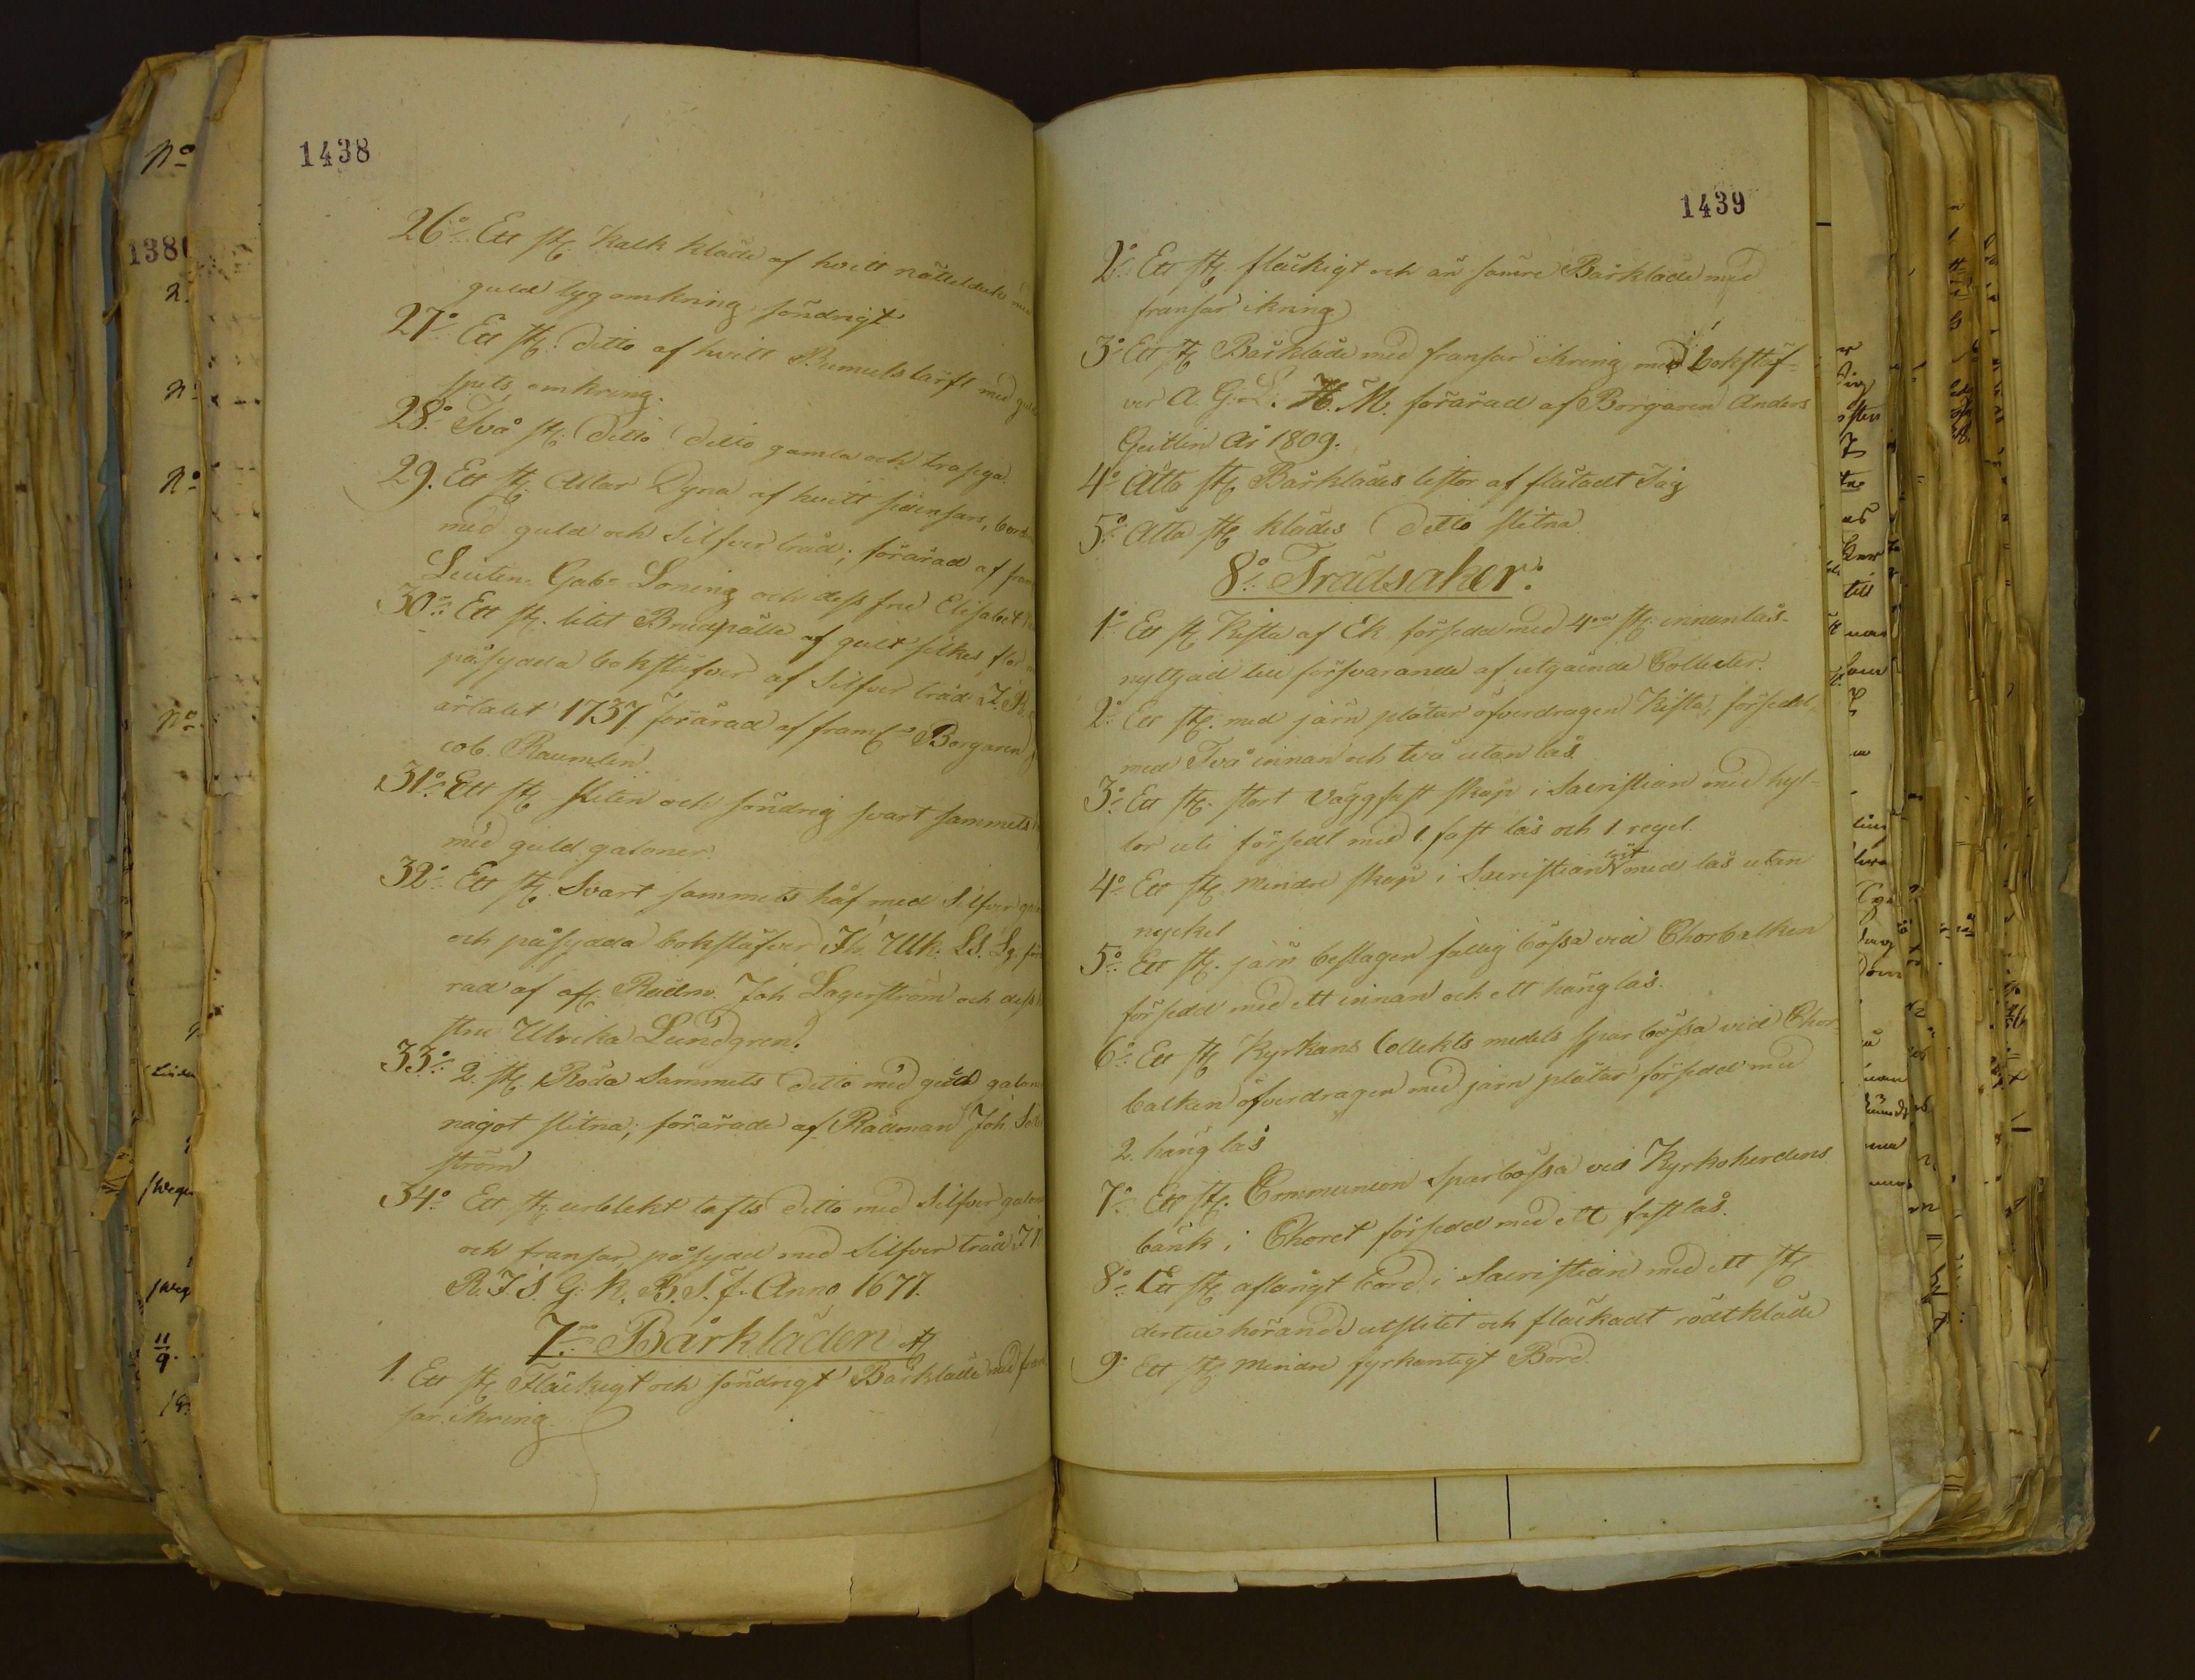 1438
26o Ett st. Kalk kläde af hvitt nättelduk med
guld tyg omkring, söndrigt
27o Ett st. ditto af hvitt Bumuls lärft med guld
spets omkring.
28o Två st. Ditto ditto gamla och trasiga.
29. Ett st. Altar Dyna af hvitt sidensars,
med guld och Silfver tråd; förärad af
Leuten. Gab. Loning och dess fru Elisabet
30o Ett st. litet Brudpälle af gult silkes flor
påsydda bokstäfver af Silfver tråd I. R
årtalet 1737 förärad af framl. Borgaren
cob. Raumlin
31o Ett st. sliten och söndrig svart sammets
med guld galoner.
32o Ett st. Svart sammets håf med Silfver
och påsydda bokstäfver Jh. Ulk. Ls. Lg. för
rad af Rådm. Joh Lagerström och dess
stru Ulrika Lundgren.
33o 2. st. Röda Sammets ditto med guld galoner
något slitna; förärade af Rådman Joh.
ström
34o Ett st. urblekt tafts ditto med Silfver galon
och fransar, påsydd med Silfver tråd
R. J S. G. K. B. S. f. Anno 1677.
7o Bårkläden
1. Ett st. Fläckigt och söndrigt Bårkläde med fran
sar ikring
1439
2o Ett st. fläckigt och än sämre Bårkläde med
fransar ikring
3o Ett st. Bårkläde med fransar ikring med bokstäf-
ver A. G. L. H. M. förärad af Borgaren Anders
Geitlin År 1809.
4o Åtta st. Bårklädes listor af flätadt Tåg
5o Åtta st. klädes Ditto slitna
8o Trädsaker:
1o Ett st. Kista af Ek försedd med 4ra st. innanlås
nyttjad till försvarande af utgående Collecter.
2o Ett st. med järn plåtar öfverdragen Kista, försedd
med Två innan och två utan lås
3o Ett st. stort väggfast skåp i Sacristian med hyl-
lor uti försedt med 1. fast lås och 1. regel.
4o Ett st. Mindre skåp i Sacristian med lås utan
nyckel
5o Ett st. järn beslagen fattig bössa vid Chorbalken
försedd med ett innan och ett hänglås.
6o Ett st. Kyrkans Collekts medels spar bössa vid Chor-
balken öfverdragen med järn plåtar försedd med
2. häng lås
7o Ett st. Communion Sparbössa vid Kyrkoherdens
bänk i Choret försedd med ett fast lås.
8o Ett st. aflångt bord i Sacristian med ett st.
dertill hörande utslitet och fläckadt rödt kläde
9o Ett st. Mindre fyrkantigt Bord.